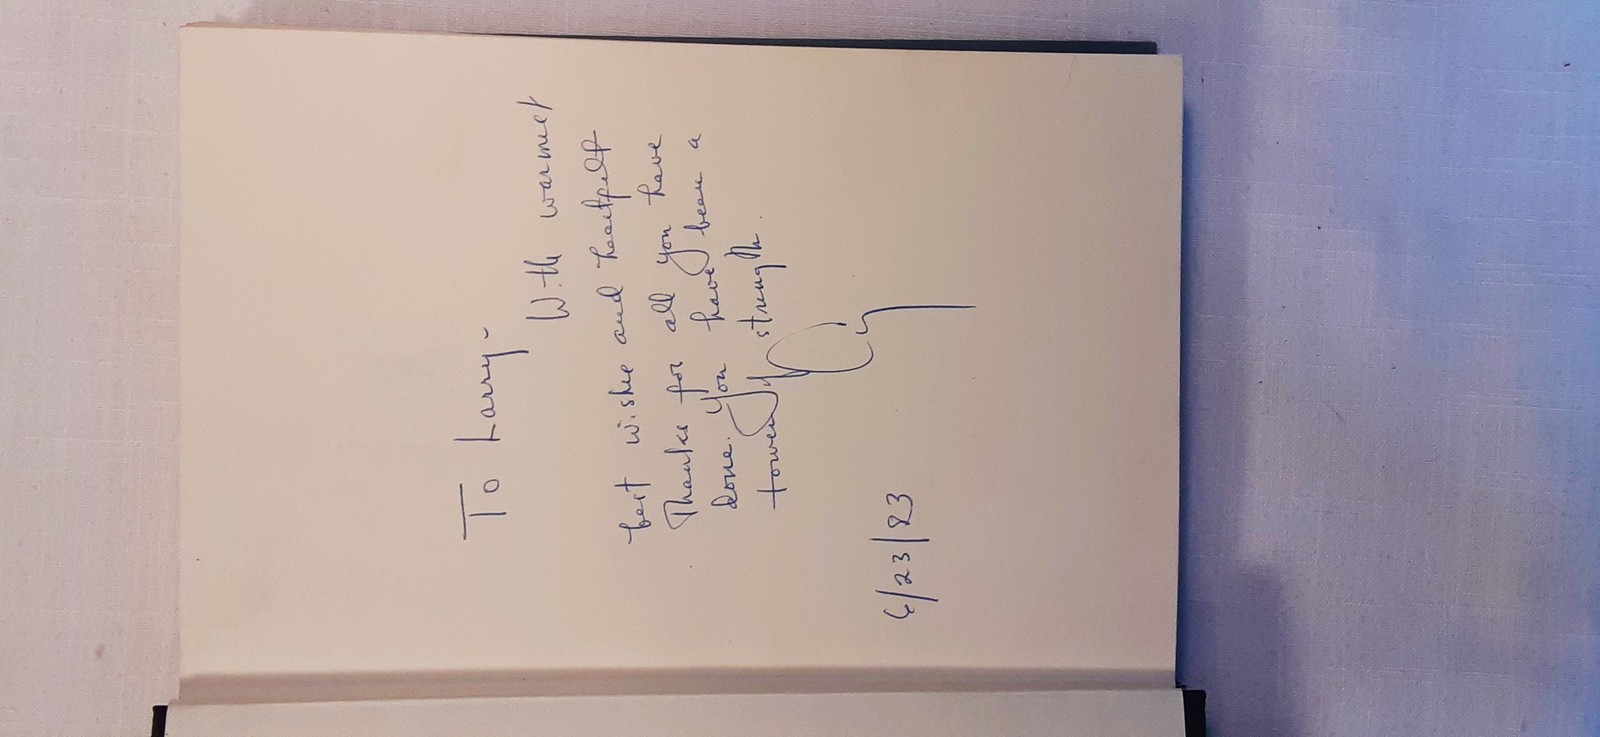 To Larry-
With warmest
best wishes and heartfelt
Thanks for all you have
done. You have been a
tower of strength.
6/23/83